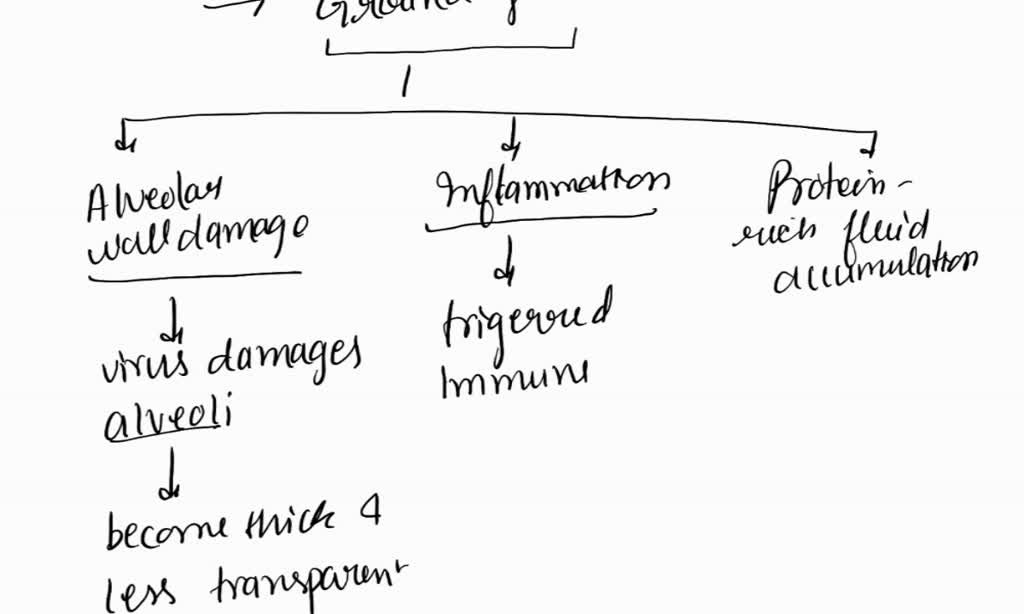 Alveolar
wall damage
virus damages
alveoli
become thick &
less transparent
Inflammation
trigerred
Immune
Protein-
rich fluid
accumulation